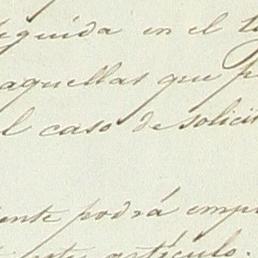 seguida en el t
aquellas que p
l caso de solicit
ente podrá emp
este artículo.